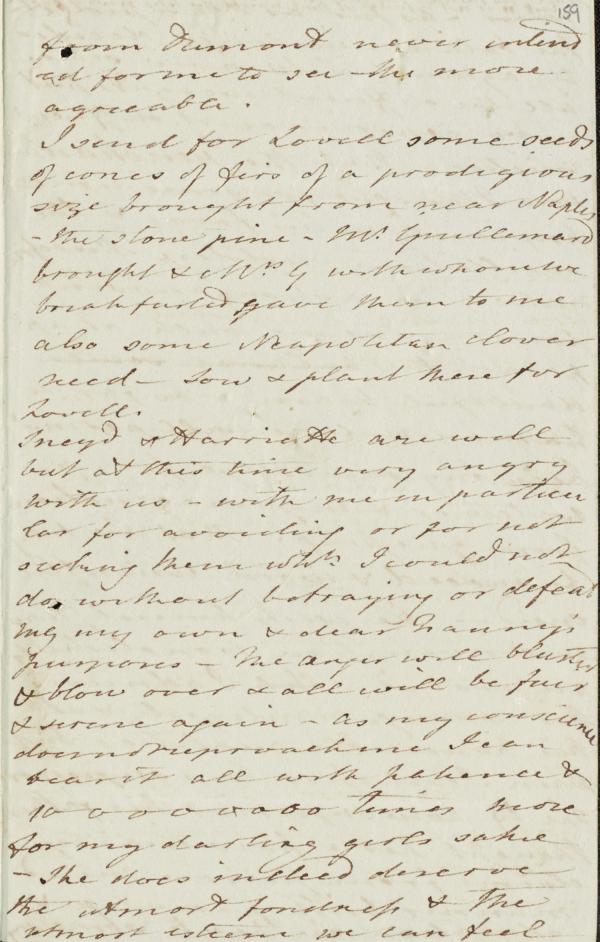 159
from Dumont never intend
ed for me to see the more
agreeable.
I send for Lovell some seeds
of cones of firs of a prodigious
size brought from near Naples
- the stone pine - Mr. Guillemard
brought & Mrs G with whom we
breakfasted gave them to me
also some Neapolitan clover
seed - Sow & plant these for
Lovell.
Sneyd & Harriette are well
but at this time very angry
with us - with me in particu
lar for avoiding or for not
seeking them which I could not
do without betraying or defeat
ing my own & dear Fanny's
purposes - The anger will bluster
& blow over & all will be fair
& serene again - as my conscience
does not reproach me I can
bear it all with patience &
10000000 times more
for my darling girls sake
- She does indeed deserve
the utmost fondness & the
utmost esteem we can feel